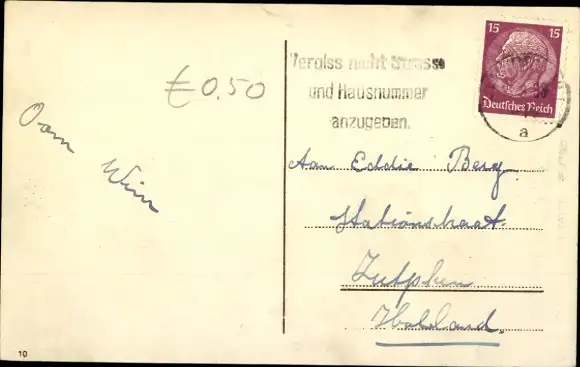 15 15
Deutsches Reich
Vergiss nicht Strasse
und Hausnummer
anzugeben.
a
€ 0.50
Oom Wim
Aan Eddie Berg
Stationstraat
Zutphen
Holland.
10